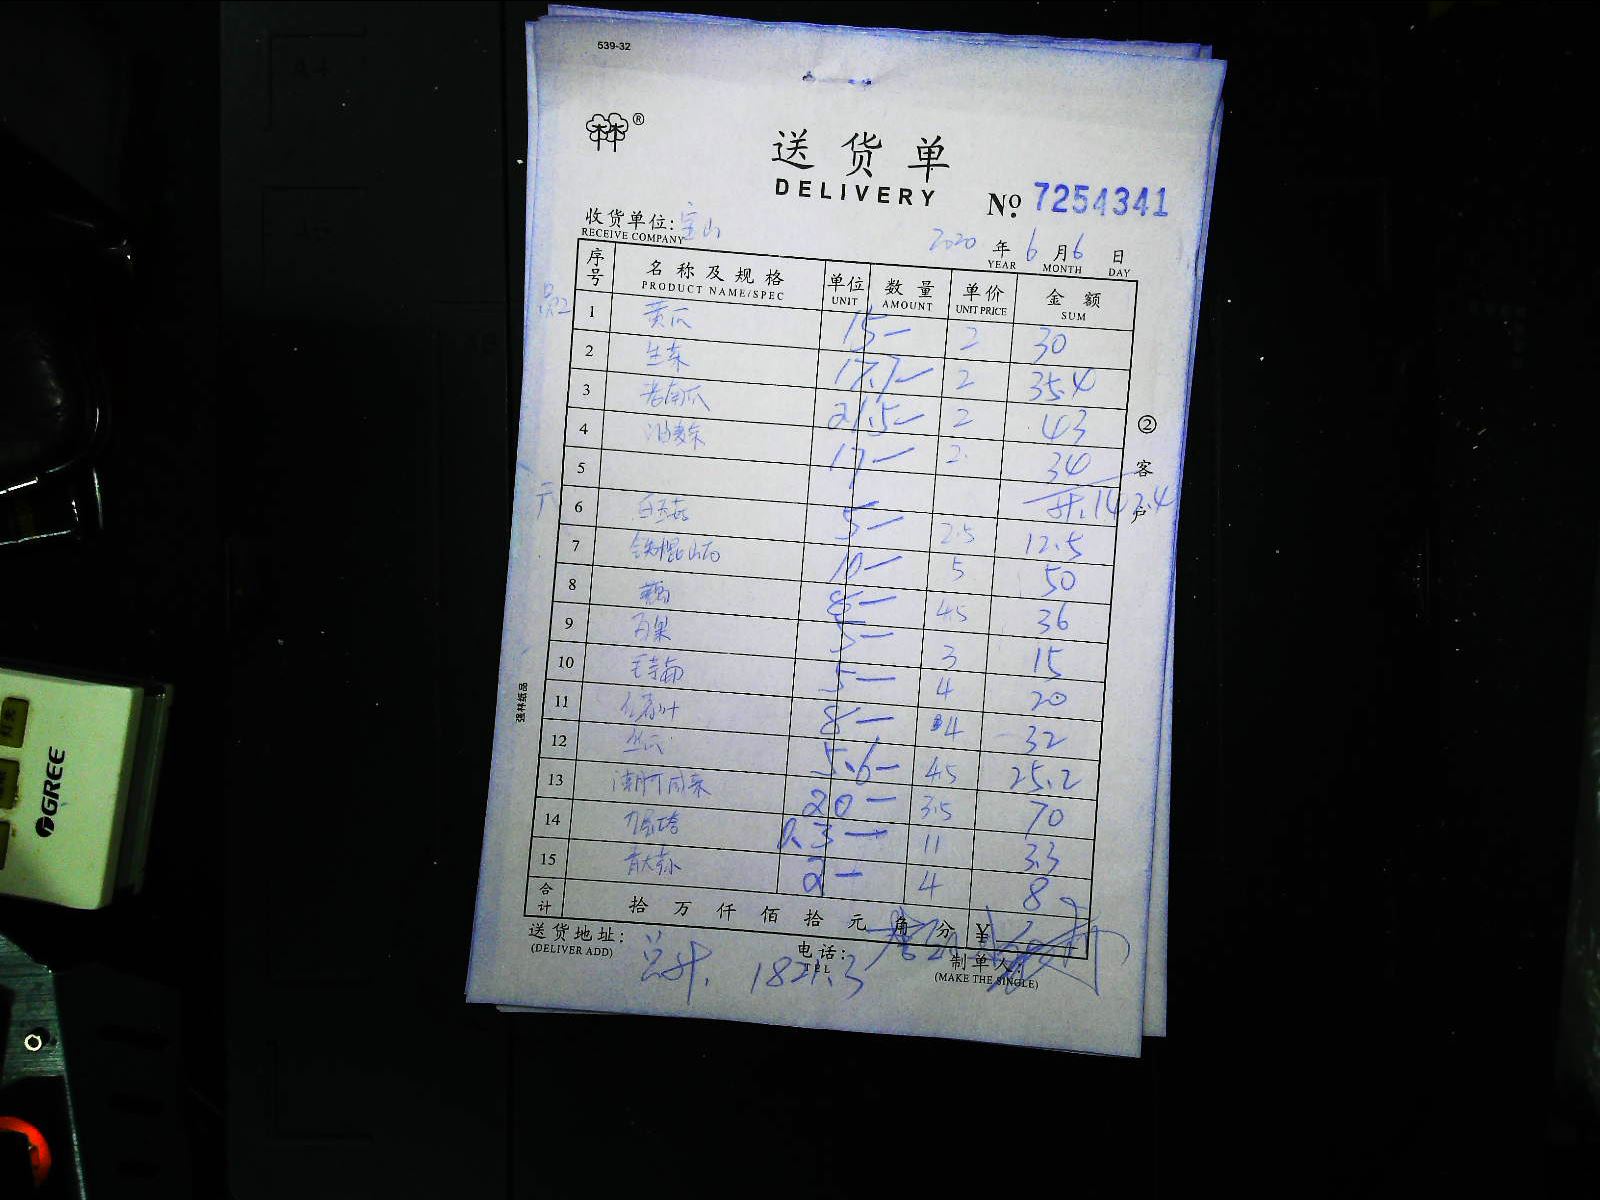 539-32
林 ®
送货单
DELIVERY
№ 7254341
收货单位: 宝山
RECEIVE COMPANY
2020 年 6 月 6 日
YEAR MONTH DAY
序号 名称及规格 单位 数量 单价 金额
PRODUCT NAME/SPEC UNIT AMOUNT UNIT PRICE SUM
1 黄瓜 15- 2 30
2 生菜 17.7- 2 35.4
3 老南瓜 21.5- 2 43
4 油麦菜 17- 2 34
5 计.142.4
6 白玉菇 5- 2.5 12.5
7 铁棍山药 10- 5 50
8 藕 8- 4.5 36
9 5- 3 15
10 5- 4 20
11 8- 4 32
12 5.6- 4.5 25.2
13 20- 3.5 70
14 0.3- 11 3.3
15 2- 4 8
合计 拾 万 仟 佰 拾 元 角 分 ¥
送货地址:
(DELIVER ADD)
电话:
TEL
制单人:
(MAKE THE SINGLE)
总计. 1821.3
② 客户
强林纸品
GREE